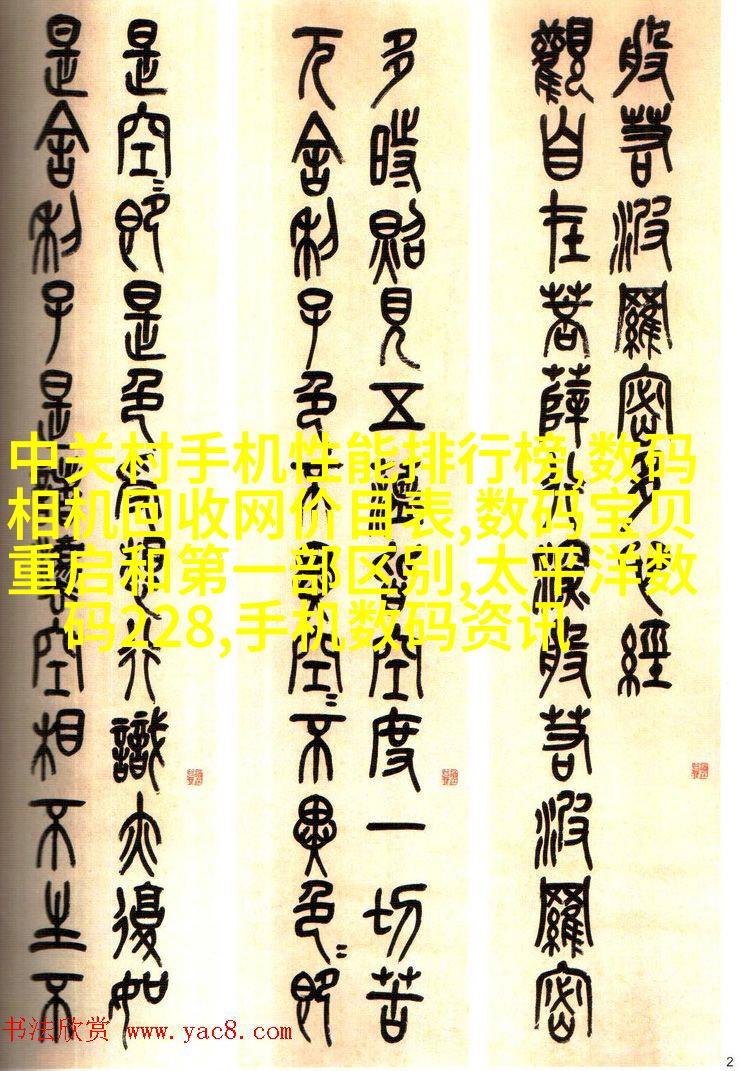 般若波羅密多心經
觀自在菩薩行深般若波羅密
多時照見五蘊皆空度一切苦
厄舍利子色不異空〻不異色〻即
是空〻即是色受想行識亦復如
是舍利子是諸法空相不生不
中关村手机性能排行榜,数码
相机回收网价目表,数码宝贝
重启和第一部区别,太平洋数
码228,手机数码资讯
书法欣赏 www.yac8.com
2